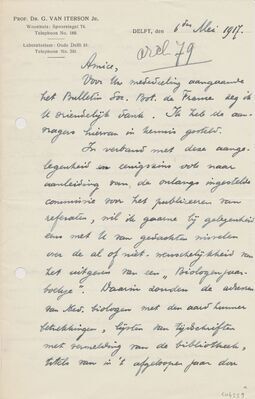 PROF. DR. G. VAN ITERSON JR.
Woonhuis: Spoorsingel 74.
Telephoon No. 199.
Laboratorium: Oude Delft 81.
Telephoon No. 201.
DELFT, den 6 den Mei 1917.
arch 79
Amice,
Voor Uw mededeeling aangaande
het Bulletin Soc. Bot. de France zeg ik
U vriendelijk dank. Ik heb de aan-
vragers hiervan in kennis gesteld.
In verband met deze aange-
legenheid en eenigszins ook naar
aanleiding van de onlangs ingestelde
commissie voor het publiceeren van
referaten, wil ik gaarne bij gelegenheid
eens met U van gedachten wisselen
over de al of niet wenschelijkheid van
het uitgeven van een "Biologenjaar-
boekje". Daarin zouden de adressen
van Ned. biologen met den aard hunner
betrekkingen, lijsten van tijdschriften
met vermelding van de bibliotheek,
titels van in 't afgeloopen jaar door